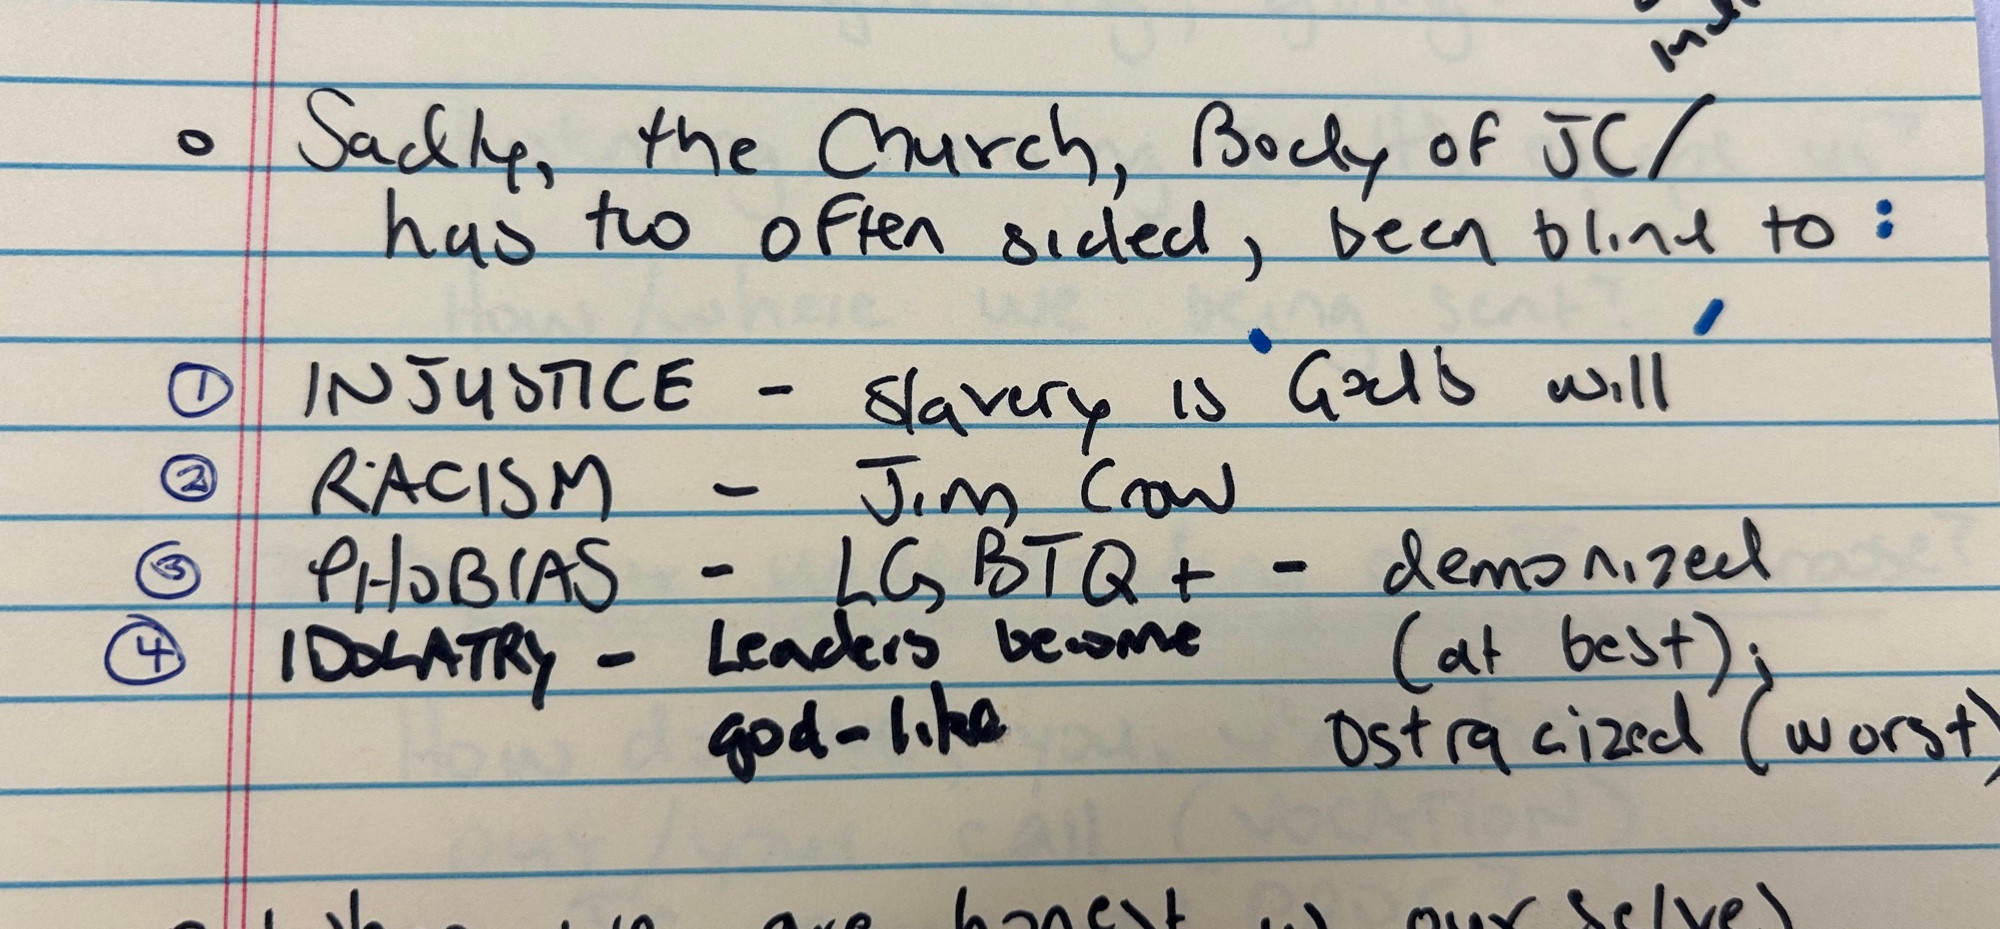 o Sadly, the Church, Body of JC/
has too often sided, been blind to :
① INJUSTICE - slavery is God's will
② RACISM - Jim Crow
③ PHOBIAS - LGBTQ + - demonized
④ IDOLATRY - Leaders become (at best);
god-like ostracized (worst)
we are honest w ourselves